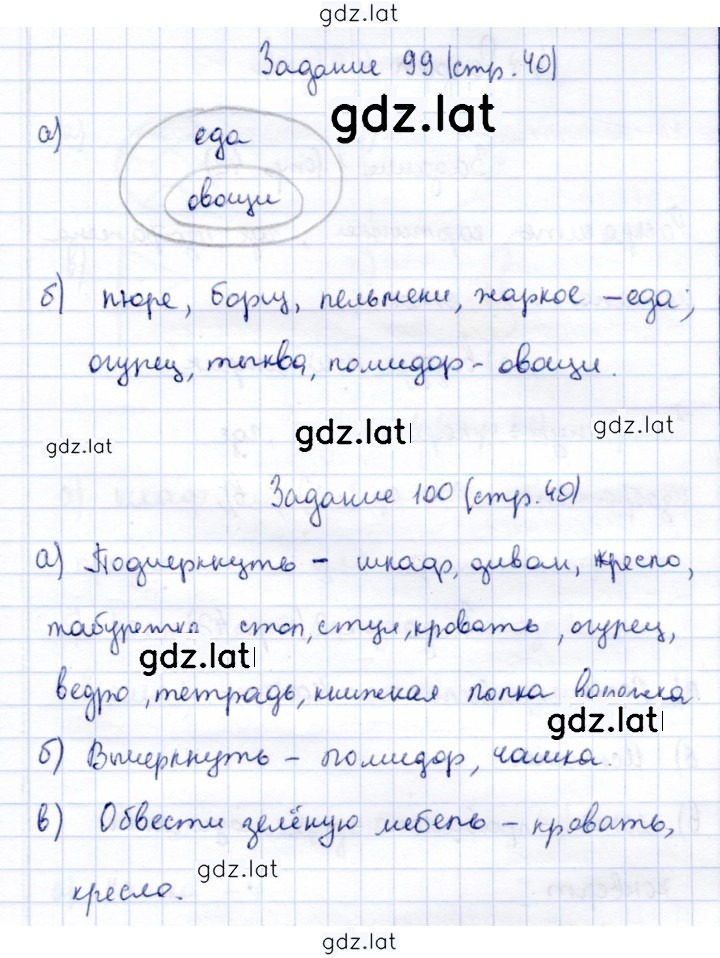 gdz.lat
Задание 99 (стр. 40)
gdz.lat
а)
еда
овощи
б) пюре, борщ, пельмени, жаркое – еда;
огурец, тыква, помидор – овощи.
gdz.lat
gdz.lat
gdz.lat
Задание 100 (стр. 40)
а) Подчеркнуть – шкаф, диван, кресло,
табуретка стол, стул, кровать, огурец,
gdz.lat
ведро, тетрадь, книжная полка
gdz.lat
б) Вычеркнуть – помидор, чашка.
в) Обвести зелёную мебель – кровать,
gdz.lat
кресло.
gdz.lat